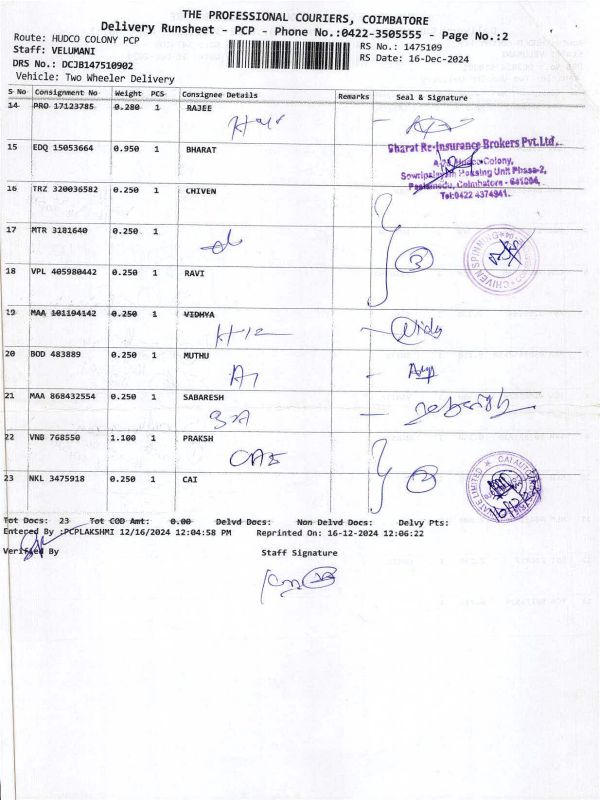 THE PROFESSIONAL COURIERS, COIMBATORE
Delivery Runsheet - PCP - Phone No.:0422-3505555 - Page No.:2
Route: HUDCO COLONY PCP
RS No.: 1475109
Staff: VELUMANI
RS Date: 16-Dec-2024
DRS No.: DCJB147510902
Vehicle: Two Wheeler Delivery
S No Consignment No Weight PCS Consignee Details Remarks Seal & Signature
14 PRO 17123785 0.280 1 RAJEE
15 EDQ 15053664 0.950 1 BHARAT
Bharat Re-Insurance Brokers Pvt.Ltd.
Colony,
Sowripalayam Housing Unit Phase-2,
Coimbatore - 641004,
Tel:0422 4374941.
16 TRZ 320036582 0.250 1 CHIVEN
17 MTR 3181640 0.250 1
3
CHIVEN SPINNING
18 VPL 405980442 0.250 1 RAVI
19 MAA 101104142 0.250 1 VIDHYA
20 BOD 483889 0.250 1 MUTHU
21 MAA 868432554 0.250 1 SABARESH
22 VNB 768550 1.100 1 PRAKSH
2
23 NKL 3475918 0.250 1 CAI
Tot Docs: 23 Tot COD Amt: 0.00 Delvd Docs: Non Delvd Docs: Delvy Pts:
Enteced By :PCPLAKSHMI 12/16/2024 12:04:58 PM Reprinted On: 16-12-2024 12:06:22
Verified By
Staff Signature